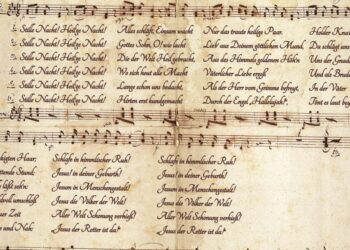 Stille Nacht! Heil'ge Nacht! Alles schläft, Einsam wacht Nur das traute heilige Paar. Holder Knab
Stille Nacht! Heil'ge Nacht! Gottes Sohn, O! wie lacht Lieb' aus Deinem göttlichen Mund, Da schlägt uns
Stille Nacht! Heil'ge Nacht! Die der Welt Heil gebracht, Aus des Himmels goldenen Höh'n
Stille Nacht! Heil'ge Nacht! Wo sich heut alle Macht Väterlicher Liebe ergoß
Stille Nacht! Heil'ge Nacht! Lange schon uns bedacht, Als der Herr vom Grimme befreyt, In der Väter
Stille Nacht! Heil'ge Nacht! Hirten erst kundgemacht Durch der Engel „Hallelujah."
Haar; Schlafe in himmlischer Ruh! Schlafe in himmlischer Ruh!
Stund; Jesus! in deiner Geburth! Jesus! in deiner Geburth!
Jesum in Menschengestalt! Jesum in Menschengestalt!
Jesus die Völker der Welt! Jesus die Völker der Welt!
Zeit Aller Welt Schonung verhieß! Aller Welt Schonung verhieß!
und Nah: Jesus der Retter ist da! Jesus der Retter ist da!